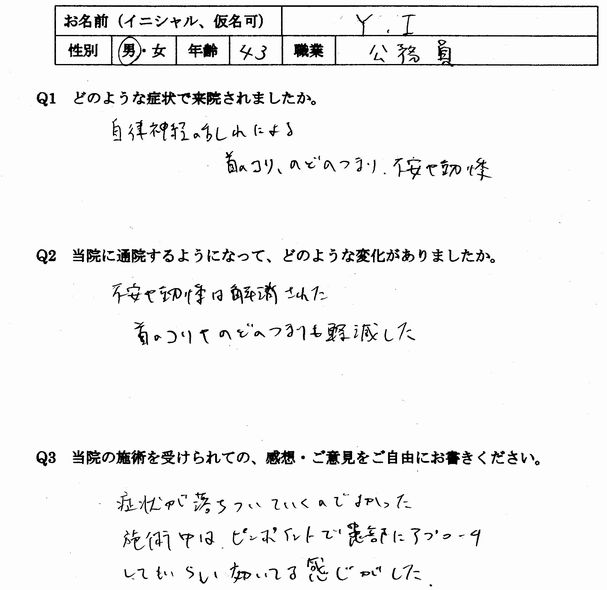 お名前（イニシャル、仮名可） Y.I
性別 男・女 年齢 43 職業 公務員
Q1 どのような症状で来院されましたか。
自律神経の乱れによる
首のコリ、のどのつまり、不安や動悸
Q2 当院に通院するようになって、どのような変化がありましたか。
不安や動悸は解消された
首のコリやのどのつまりも軽減した
Q3 当院の施術を受けられての、感想・ご意見をご自由にお書きください。
症状が落ちついていくのでよかった
施術中は、ピンポイントで患部にアプローチ
してもらい効いてる感じがした。